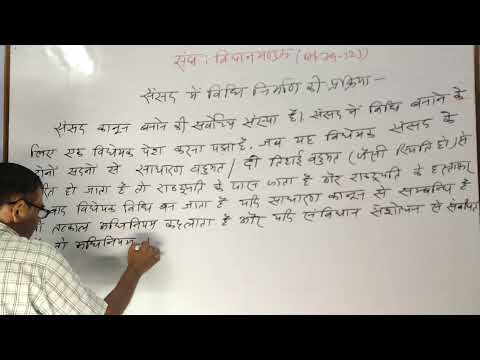 संघ : विधानमण्डल (
संसद में विधि निर्माण की प्रक्रिया -
संसद कानून बनाने की सर्वोच्च संस्था है। संसद में विधि बनाने के
लिए एक विधेयक पेश करना पड़ता है। जब यह विधेयक संसद के
दोनों सदनों से साधारण बहुमत / दो तिहाई बहुमत (जैसी स्थिति हो) से
हो जाता है तो राष्ट्रपति के पास जाता है और राष्ट्रपति के हस्ताक्षर
विधेयक विधि बन जाता है यदि साधारण कानून से सम्बन्धित है
तत्काल अधिनियम कहलाता है और यदि संविधान संशोधन से संबंधित
तो अधिनियम